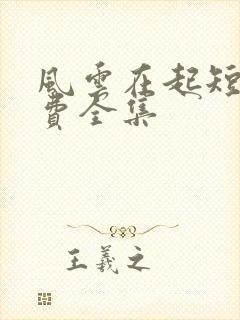 風雲在起短
費全集
王羲之